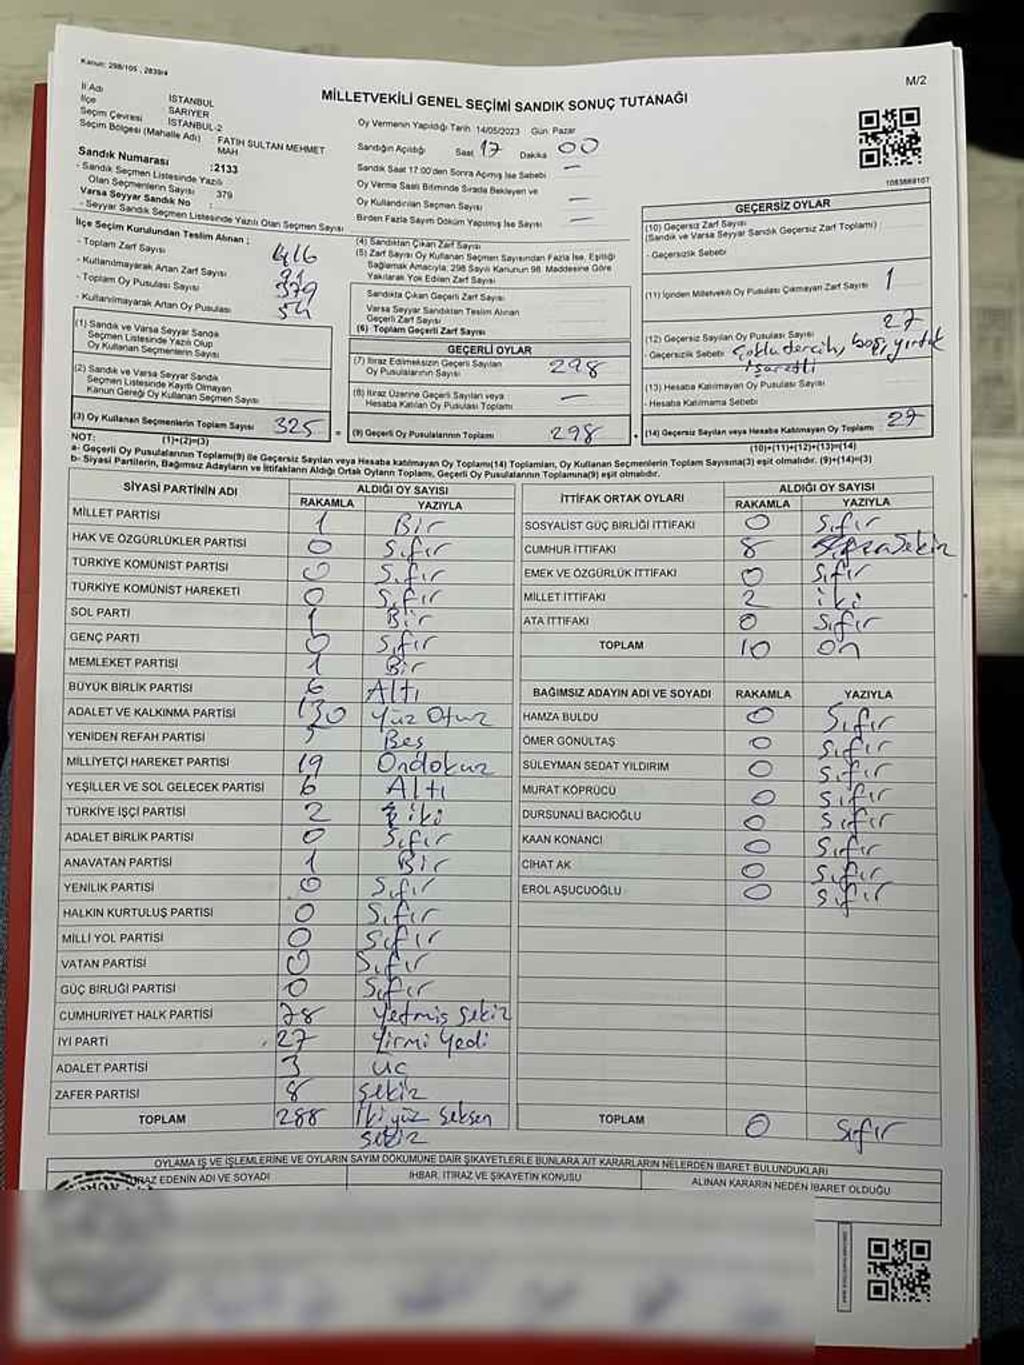 Kanun: 298/105 , 2839/4
M/2
MİLLETVEKİLİ GENEL SEÇİMİ SANDIK SONUÇ TUTANAĞI
İl Adı İSTANBUL
İlçe SARIYER
Seçim Çevresi İSTANBUL-2
Seçim Bölgesi (Mahalle Adı) FATİH SULTAN MEHMET MAH
Sandık Numarası :2133
- Sandık Seçmen Listesinde Yazılı Olan Seçmenlerin Sayısı 379
Varsa Seyyar Sandık No :
- Seyyar Sandık Seçmen Listesinde Yazılı Olan Seçmen Sayısı
Oy Vermenin Yapıldığı Tarih 14/05/2023 Gün Pazar
Sandığın Açıldığı Saat 17 Dakika 00
Sandık Saat 17:00'den Sonra Açmış İse Sebebi —
Oy Verme Saati Bitiminde Sırada Bekleyen ve
Oy Kullandırılan Seçmen Sayısı —
Birden Fazla Sayım Döküm Yapılmış İse Sayısı —
1083669107
İlçe Seçim Kurulundan Teslim Alınan ;
- Toplam Zarf Sayısı 416
- Kullanılmayarak Artan Zarf Sayısı 91
- Toplam Oy Pusulası Sayısı 379
- Kullanılmayarak Artan Oy Pusulası 54
(1) Sandık ve Varsa Seyyar Sandık
Seçmen Listesinde Yazılı Olup
Oy Kullanan Seçmenlerin Sayısı
(2) Sandık ve Varsa Seyyar Sandık
Seçmen Listesinde Kayıtlı Olmayan
Kanun Gereği Oy Kullanan Seçmen Sayısı
(3) Oy Kullanan Seçmenlerin Toplam Sayısı 325 =
(4) Sandıktan Çıkan Zarf Sayısı
(5) Zarf Sayısı Oy Kullanan Seçmen Sayısından Fazla İse, Eşitliği
Sağlamak Amacıyla, 298 Sayılı Kanunun 98. Maddesine Göre
Yakılarak Yok Edilen Zarf Sayısı
Sandıkta Çıkan Geçerli Zarf Sayısı
Varsa Seyyar Sandıktan Teslim Alınan
Geçerli Zarf Sayısı
(6) Toplam Geçerli Zarf Sayısı
GEÇERLİ OYLAR
(7) İtiraz Edilmeksizin Geçerli Sayılan
Oy Pusulalarının Sayısı 298
(8) İtiraz Üzerine Geçerli Sayılan veya
Hesaba Katılan Oy Pusulası Toplamı —
(9) Geçerli Oy Pusulalarının Toplamı 298
GEÇERSİZ OYLAR
(10) Geçersiz Zarf Sayısı
(Sandık ve Varsa Seyyar Sandık Geçersiz Zarf Toplamı)
- Geçersizlik Sebebi
(11) İçinden Milletvekili Oy Pusulası Çıkmayan Zarf Sayısı 1
(12) Geçersiz Sayılan Oy Pusulası Sayısı 27
- Geçersizlik Sebebi Çoklu tercih, boş, yırtık
işaretli
(13) Hesaba Katılmayan Oy Pusulası Sayısı
- Hesaba Katılmama Sebebi
(14) Geçersiz Sayılan veya Hesaba Katılmayan Oy Toplamı 27
NOT: (1)+(2)=(3) (10)+(11)+(12)+(13)=(14)
a- Geçerli Oy Pusulalarının Toplamı(9) ile Geçersiz Sayılan veya Hesaba katılmayan Oy Toplamı(14) Toplamları, Oy Kullanan Seçmenlerin Toplam Sayısına(3) eşit olmalıdır. (9)+(14)=(3)
b- Siyasi Partilerin, Bağımsız Adayların ve İttifakların Aldığı Ortak Oyların Toplamı, Geçerli Oy Pusulalarının Toplamına(9) eşit olmalıdır.
SİYASİ PARTİNİN ADI ALDIĞI OY SAYISI
RAKAMLA YAZIYLA
MİLLET PARTİSİ 1 Bir
HAK VE ÖZGÜRLÜKLER PARTİSİ 0 Sıfır
TÜRKİYE KOMÜNİST PARTİSİ 0 Sıfır
TÜRKİYE KOMÜNİST HAREKETİ 0 Sıfır
SOL PARTİ 1 Bir
GENÇ PARTİ 0 Sıfır
MEMLEKET PARTİSİ 1 Bir
BÜYÜK BİRLİK PARTİSİ 6 Altı
ADALET VE KALKINMA PARTİSİ 130 Yüz Otuz
YENİDEN REFAH PARTİSİ 5 Beş
MİLLİYETÇİ HAREKET PARTİSİ 19 Ondokuz
YEŞİLLER VE SOL GELECEK PARTİSİ 6 Altı
TÜRKİYE İŞÇİ PARTİSİ 2 iki
ADALET BİRLİK PARTİSİ 0 Sıfır
ANAVATAN PARTİSİ 1 Bir
YENİLİK PARTİSİ 0 Sıfır
HALKIN KURTULUŞ PARTİSİ 0 Sıfır
MİLLİ YOL PARTİSİ 0 Sıfır
VATAN PARTİSİ 0 Sıfır
GÜÇ BİRLİĞİ PARTİSİ 0 Sıfır
CUMHURİYET HALK PARTİSİ 78 Yetmiş Sekiz
İYİ PARTİ 27 Yirmi Yedi
ADALET PARTİSİ 3 Uç
ZAFER PARTİSİ 8 Sekiz
TOPLAM 288 İkiyüz Seksen
Sekiz
İTTİFAK ORTAK OYLARI ALDIĞI OY SAYISI
RAKAMLA YAZIYLA
SOSYALİST GÜÇ BİRLİĞİ İTTİFAKI 0 Sıfır
CUMHUR İTTİFAKI 8 Sekiz
EMEK VE ÖZGÜRLÜK İTTİFAKI 0 Sıfır
MİLLET İTTİFAKI 2 iki
ATA İTTİFAKI 0 Sıfır
TOPLAM 10 On
BAĞIMSIZ ADAYIN ADI VE SOYADI RAKAMLA YAZIYLA
HAMZA BULDU 0 Sıfır
ÖMER GÖNÜLTAŞ 0 Sıfır
SÜLEYMAN SEDAT YILDIRIM 0 Sıfır
MURAT KÖPRÜCÜ 0 Sıfır
DURSUNALİ BACIOĞLU 0 Sıfır
KAAN KONANCI 0 Sıfır
CİHAT AK 0 Sıfır
EROL AŞUCUOĞLU 0 Sıfır
TOPLAM 0 Sıfır
OYLAMA İŞ VE İŞLEMLERİNE VE OYLARIN SAYIM DÖKÜMÜNE DAİR ŞİKAYETLERLE BUNLARA AİT KARARLARIN NELERDEN İBARET BULUNDUKLARI
RAZ EDENİN ADI VE SOYADI İHBAR, İTİRAZ VE ŞİKAYETİN KONUSU ALINAN KARARIN NEDEN İBARET OLDUĞU